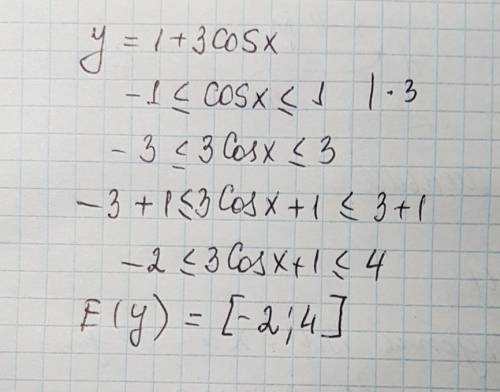 y = 1 + 3cosx
-1 ≤ cosx ≤ 1 | · 3
-3 ≤ 3cosx ≤ 3
-3 + 1 ≤ 3cosx + 1 ≤ 3 + 1
-2 ≤ 3cosx + 1 ≤ 4
E(y) = [-2; 4]